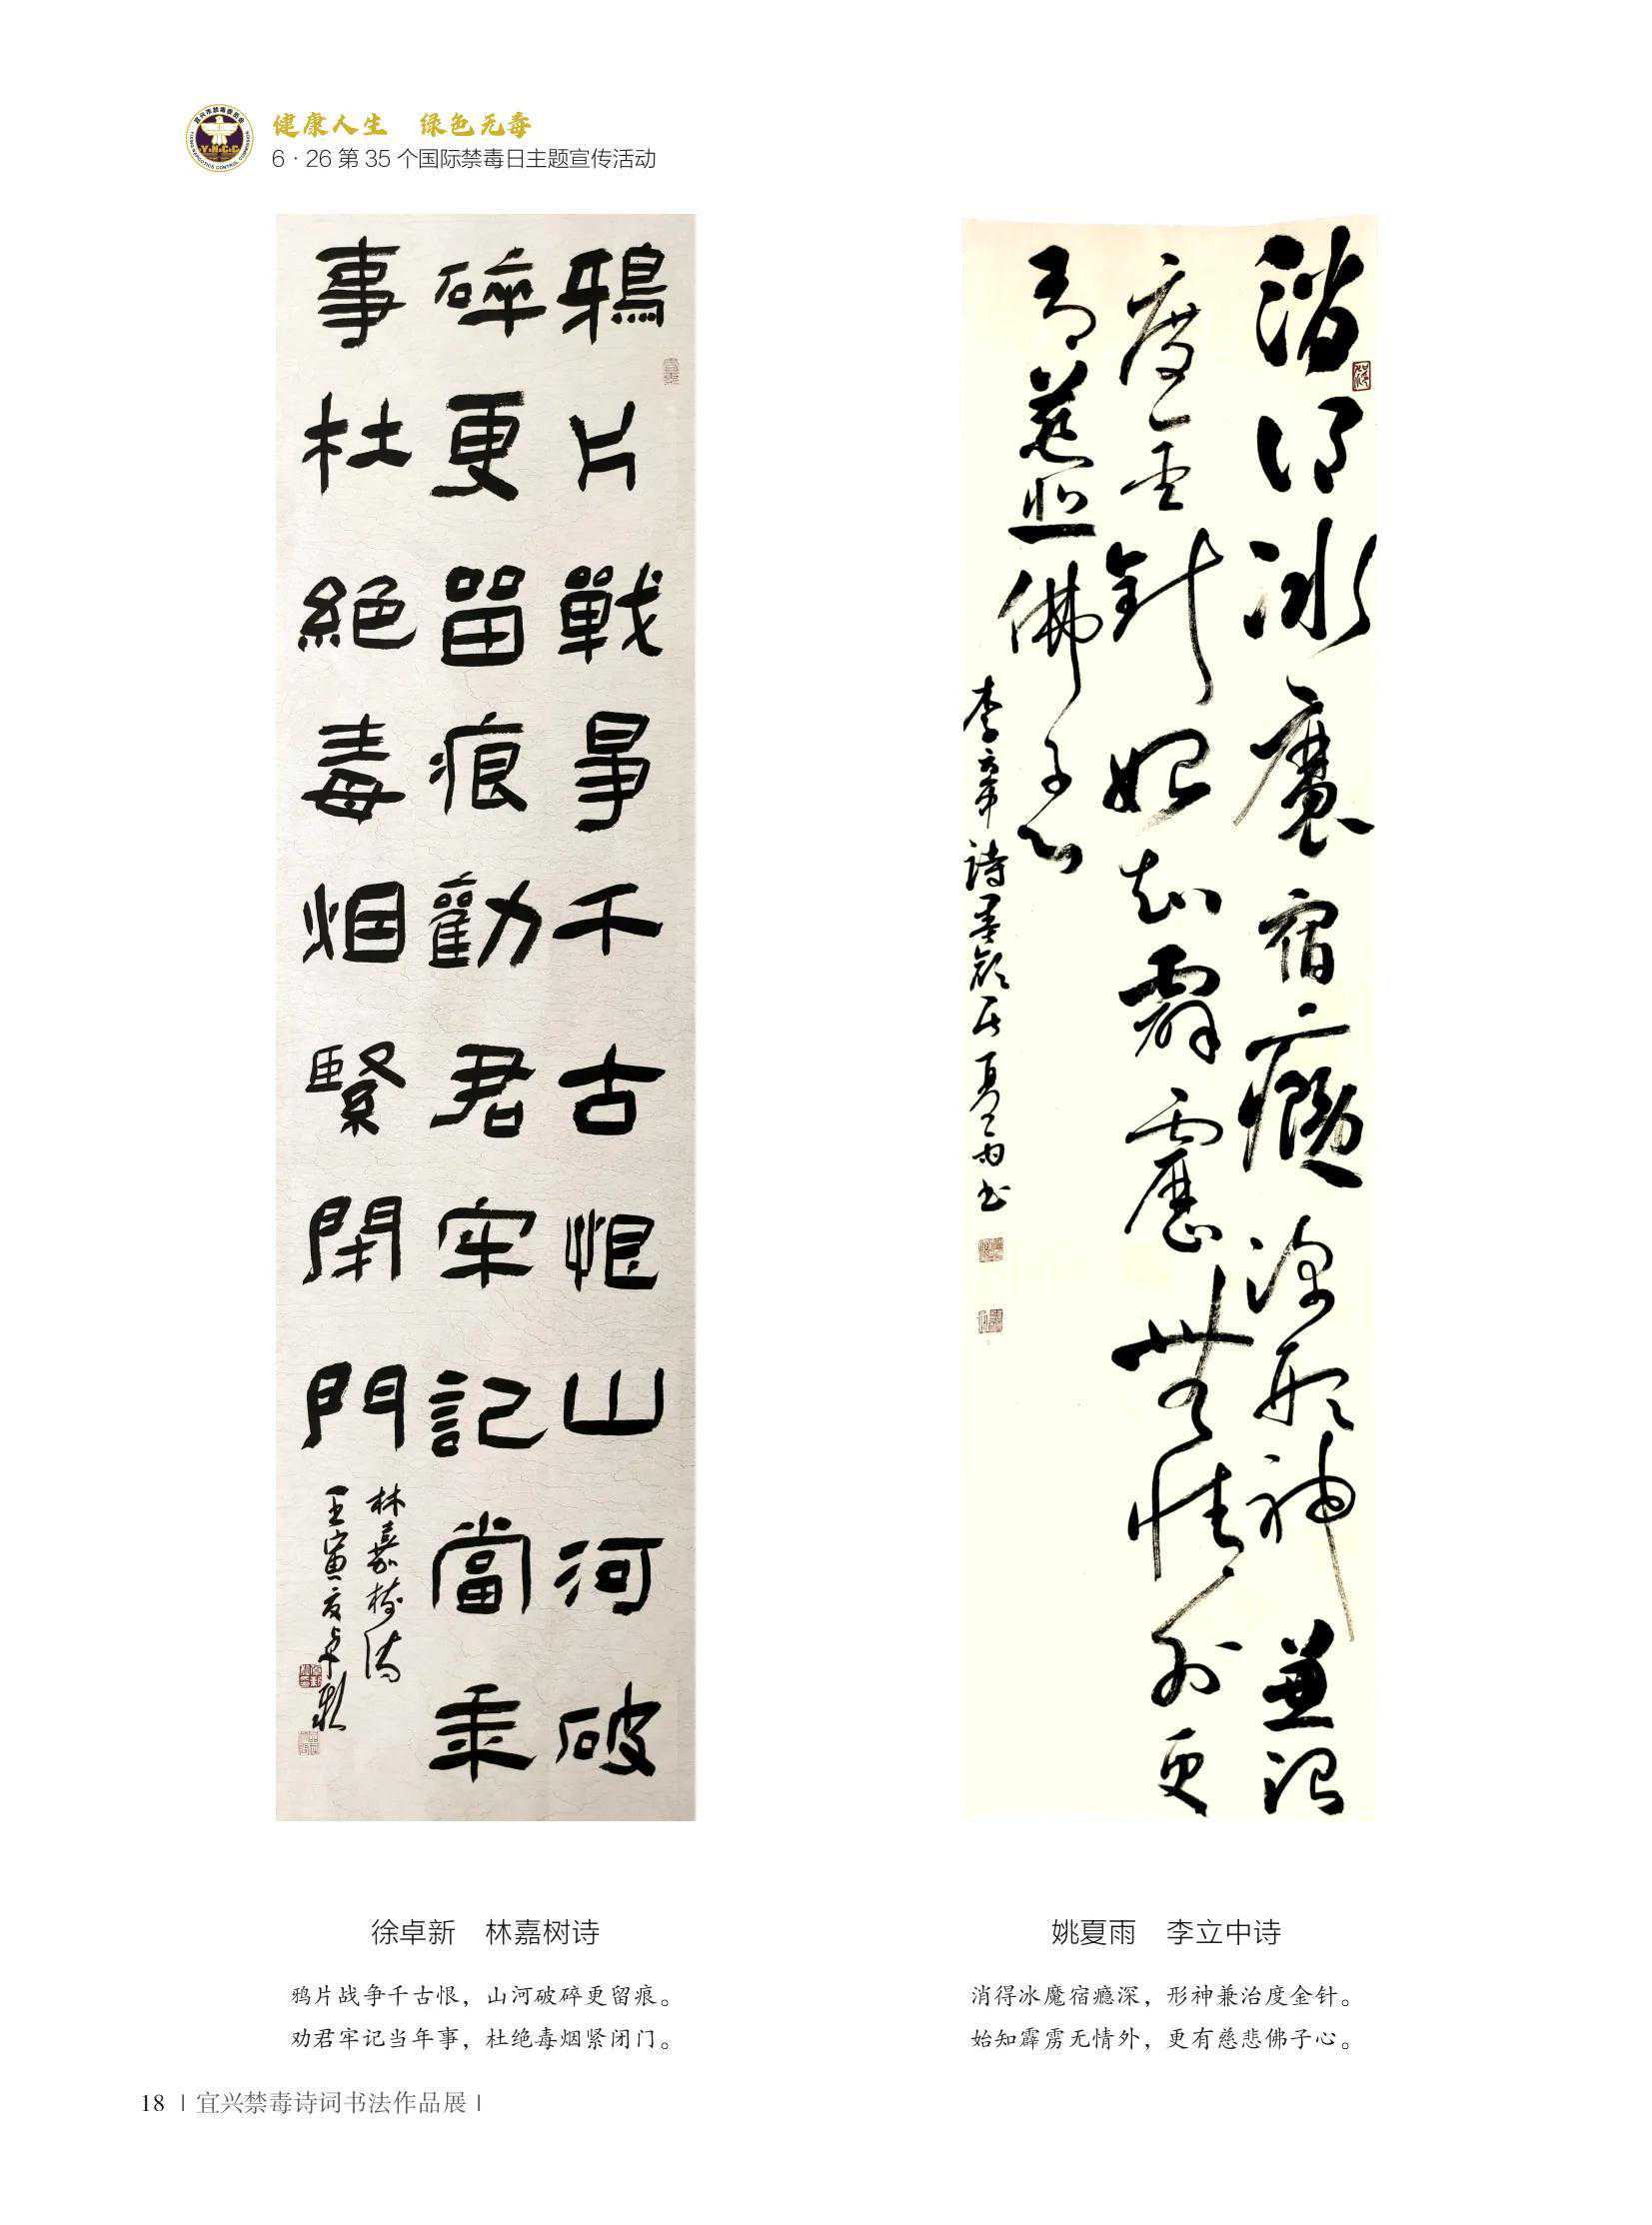 健康人生　绿色无毒
6·26 第 35 个国际禁毒日主题宣传活动
鴉片戰爭千古恨山河破
碎更留痕勸君牢記當年
事杜絕毒烟緊閉門
林嘉樹詩
壬寅夏卓新
消得冰魔宿癮深形神兼治
度金针始知霹靂無情外更
有慈悲佛子心
李立中詩 夏雨书
徐卓新　林嘉树诗
鸦片战争千古恨，山河破碎更留痕。
劝君牢记当年事，杜绝毒烟紧闭门。
姚夏雨　李立中诗
消得冰魔宿瘾深，形神兼治度金针。
始知霹雳无情外，更有慈悲佛子心。
18 | 宜兴禁毒诗词书法作品展 |